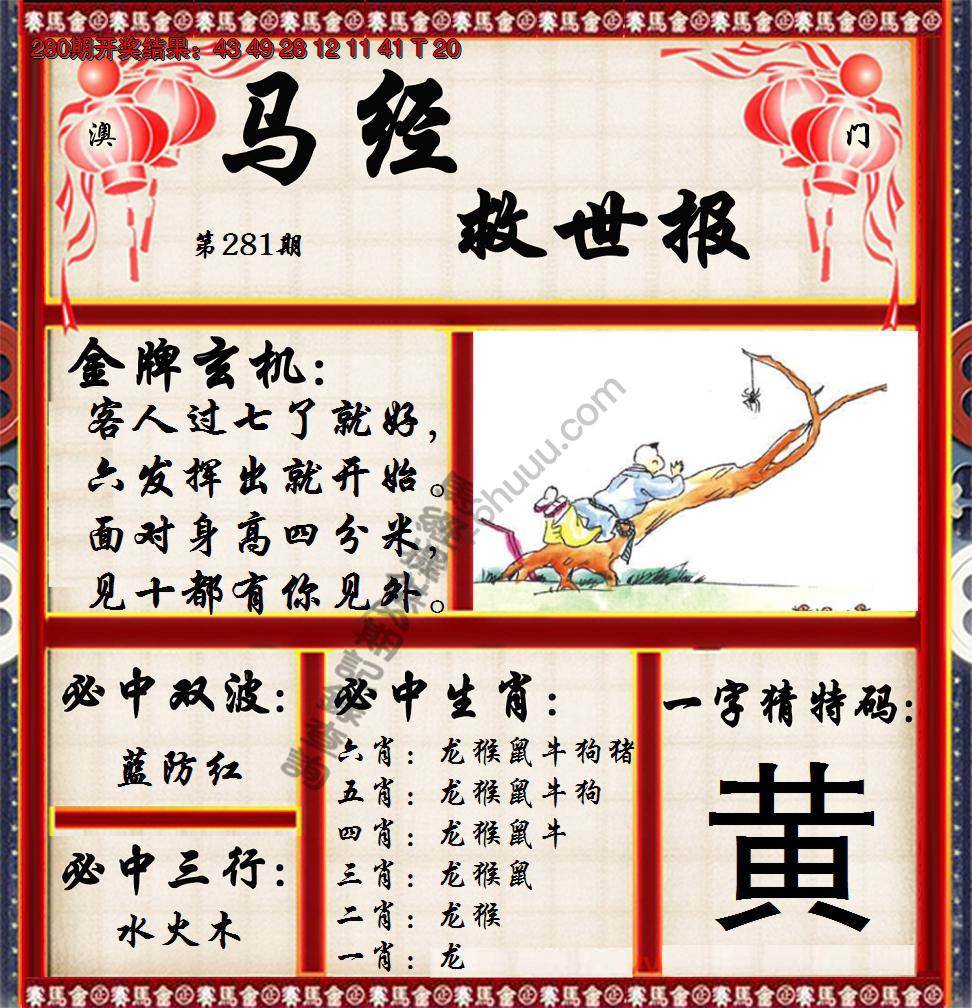 280期开奖结果：43 49 28 12 11 41 T 20
澳
门
马经
救世报
第281期
金牌玄机：
客人过七了就好，
六发挥出就开始。
面对身高四分米，
见十都有你见外。
必中双波：
蓝防红
必中三行：
水火木
必中生肖：
六肖：龙猴鼠牛狗猪
五肖：龙猴鼠牛狗
四肖：龙猴鼠牛
三肖：龙猴鼠
二肖：龙猴
一肖：龙
一字猜特码：
黄